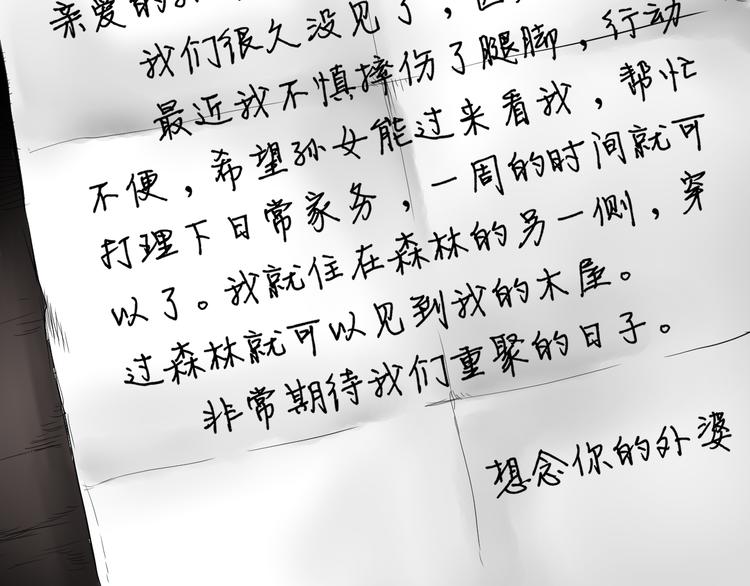 亲爱的
我们很久没见了，
最近我不慎摔伤了腿脚，行动
不便，希望孙女能过来看我，帮忙
打理下日常家务，一周的时间就可
以了。我就住在森林的另一侧，穿
过森林就可以见到我的木屋。
非常期待我们重聚的日子。
想念你的外婆